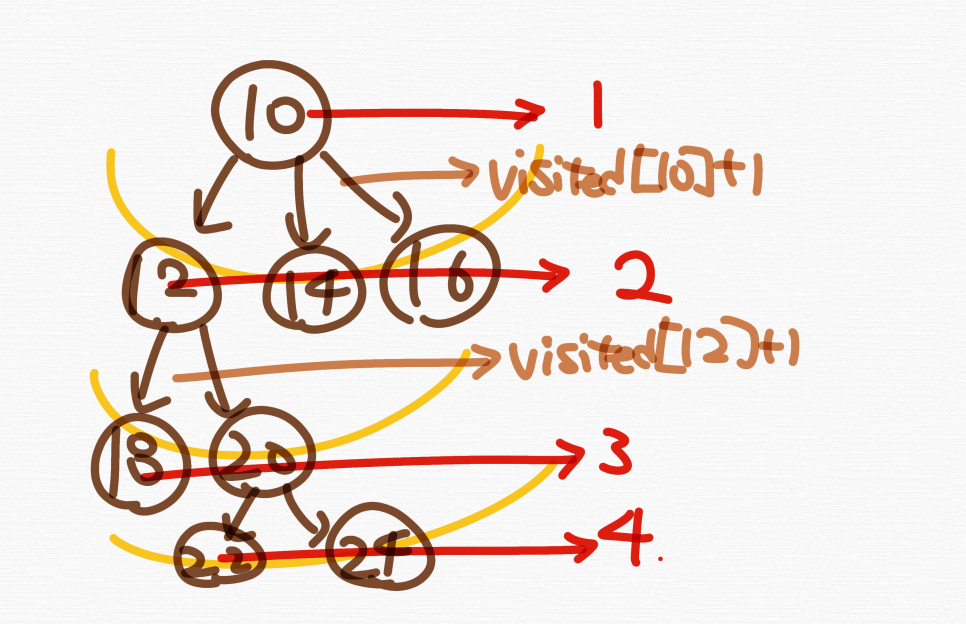 10 1
visited[10]+1
12 14 16 2
visited[12]+1
18 20 3
22 24 4.